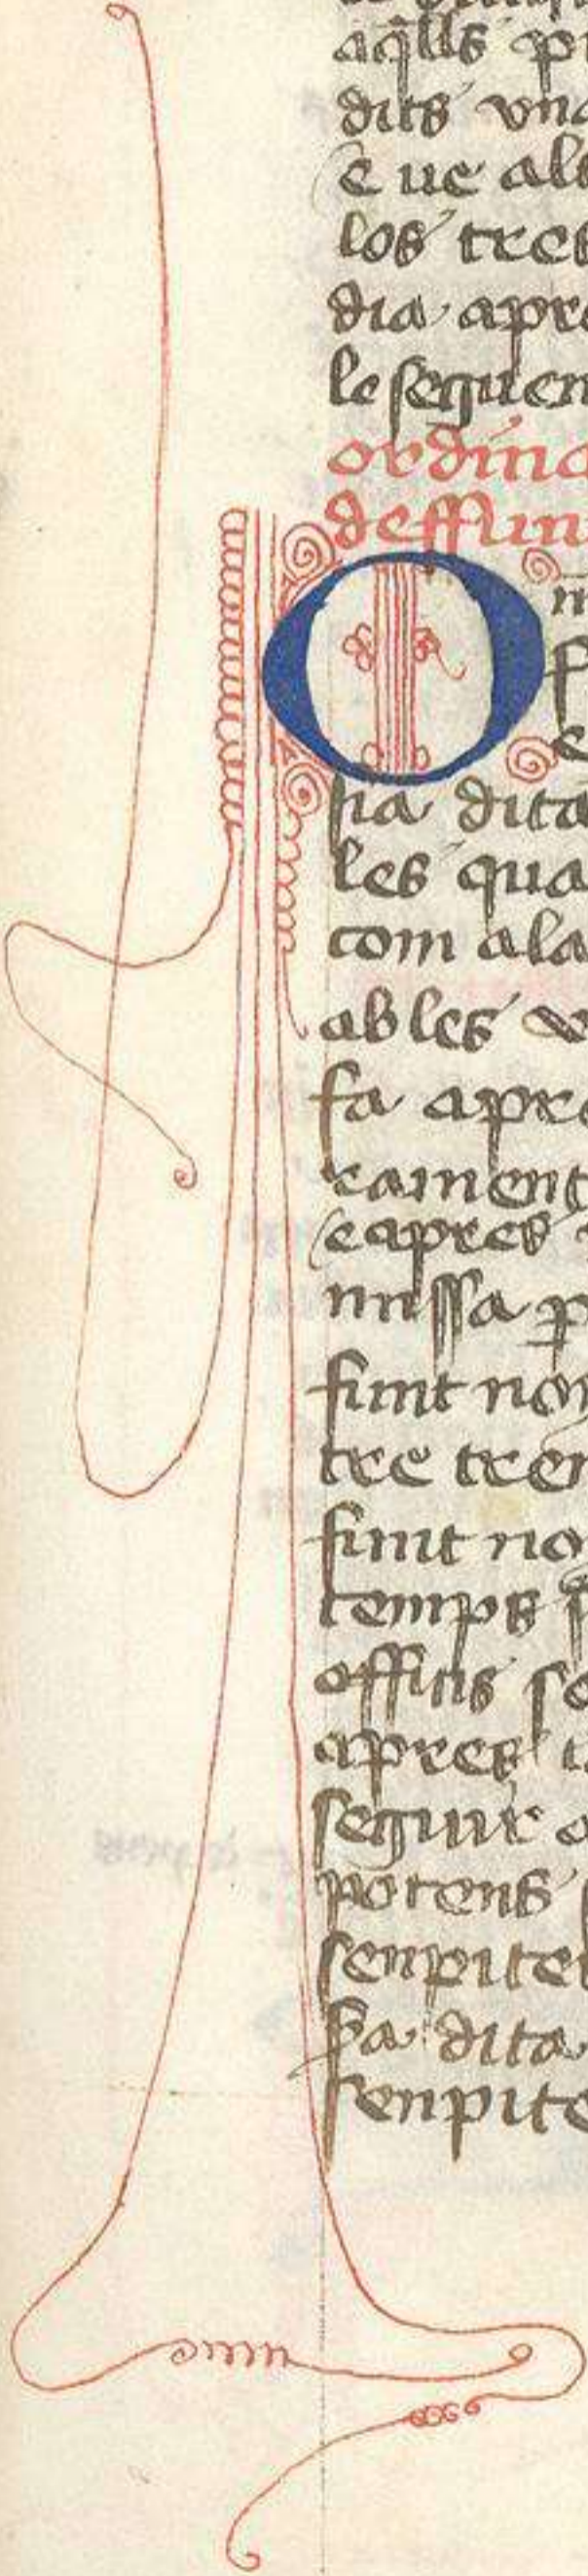 aq̃lls pi
dits vna
e ue als
los tres
dia apre
lo sequen
ordina
deffun
O m
f
e
sia dita
les qua
com ala
ables
fa apre
rament
e apres
missa p
sunt non
tre tren
sunt no
temps
officis so
apres
seguir
potens
senpiter
dita
senpite